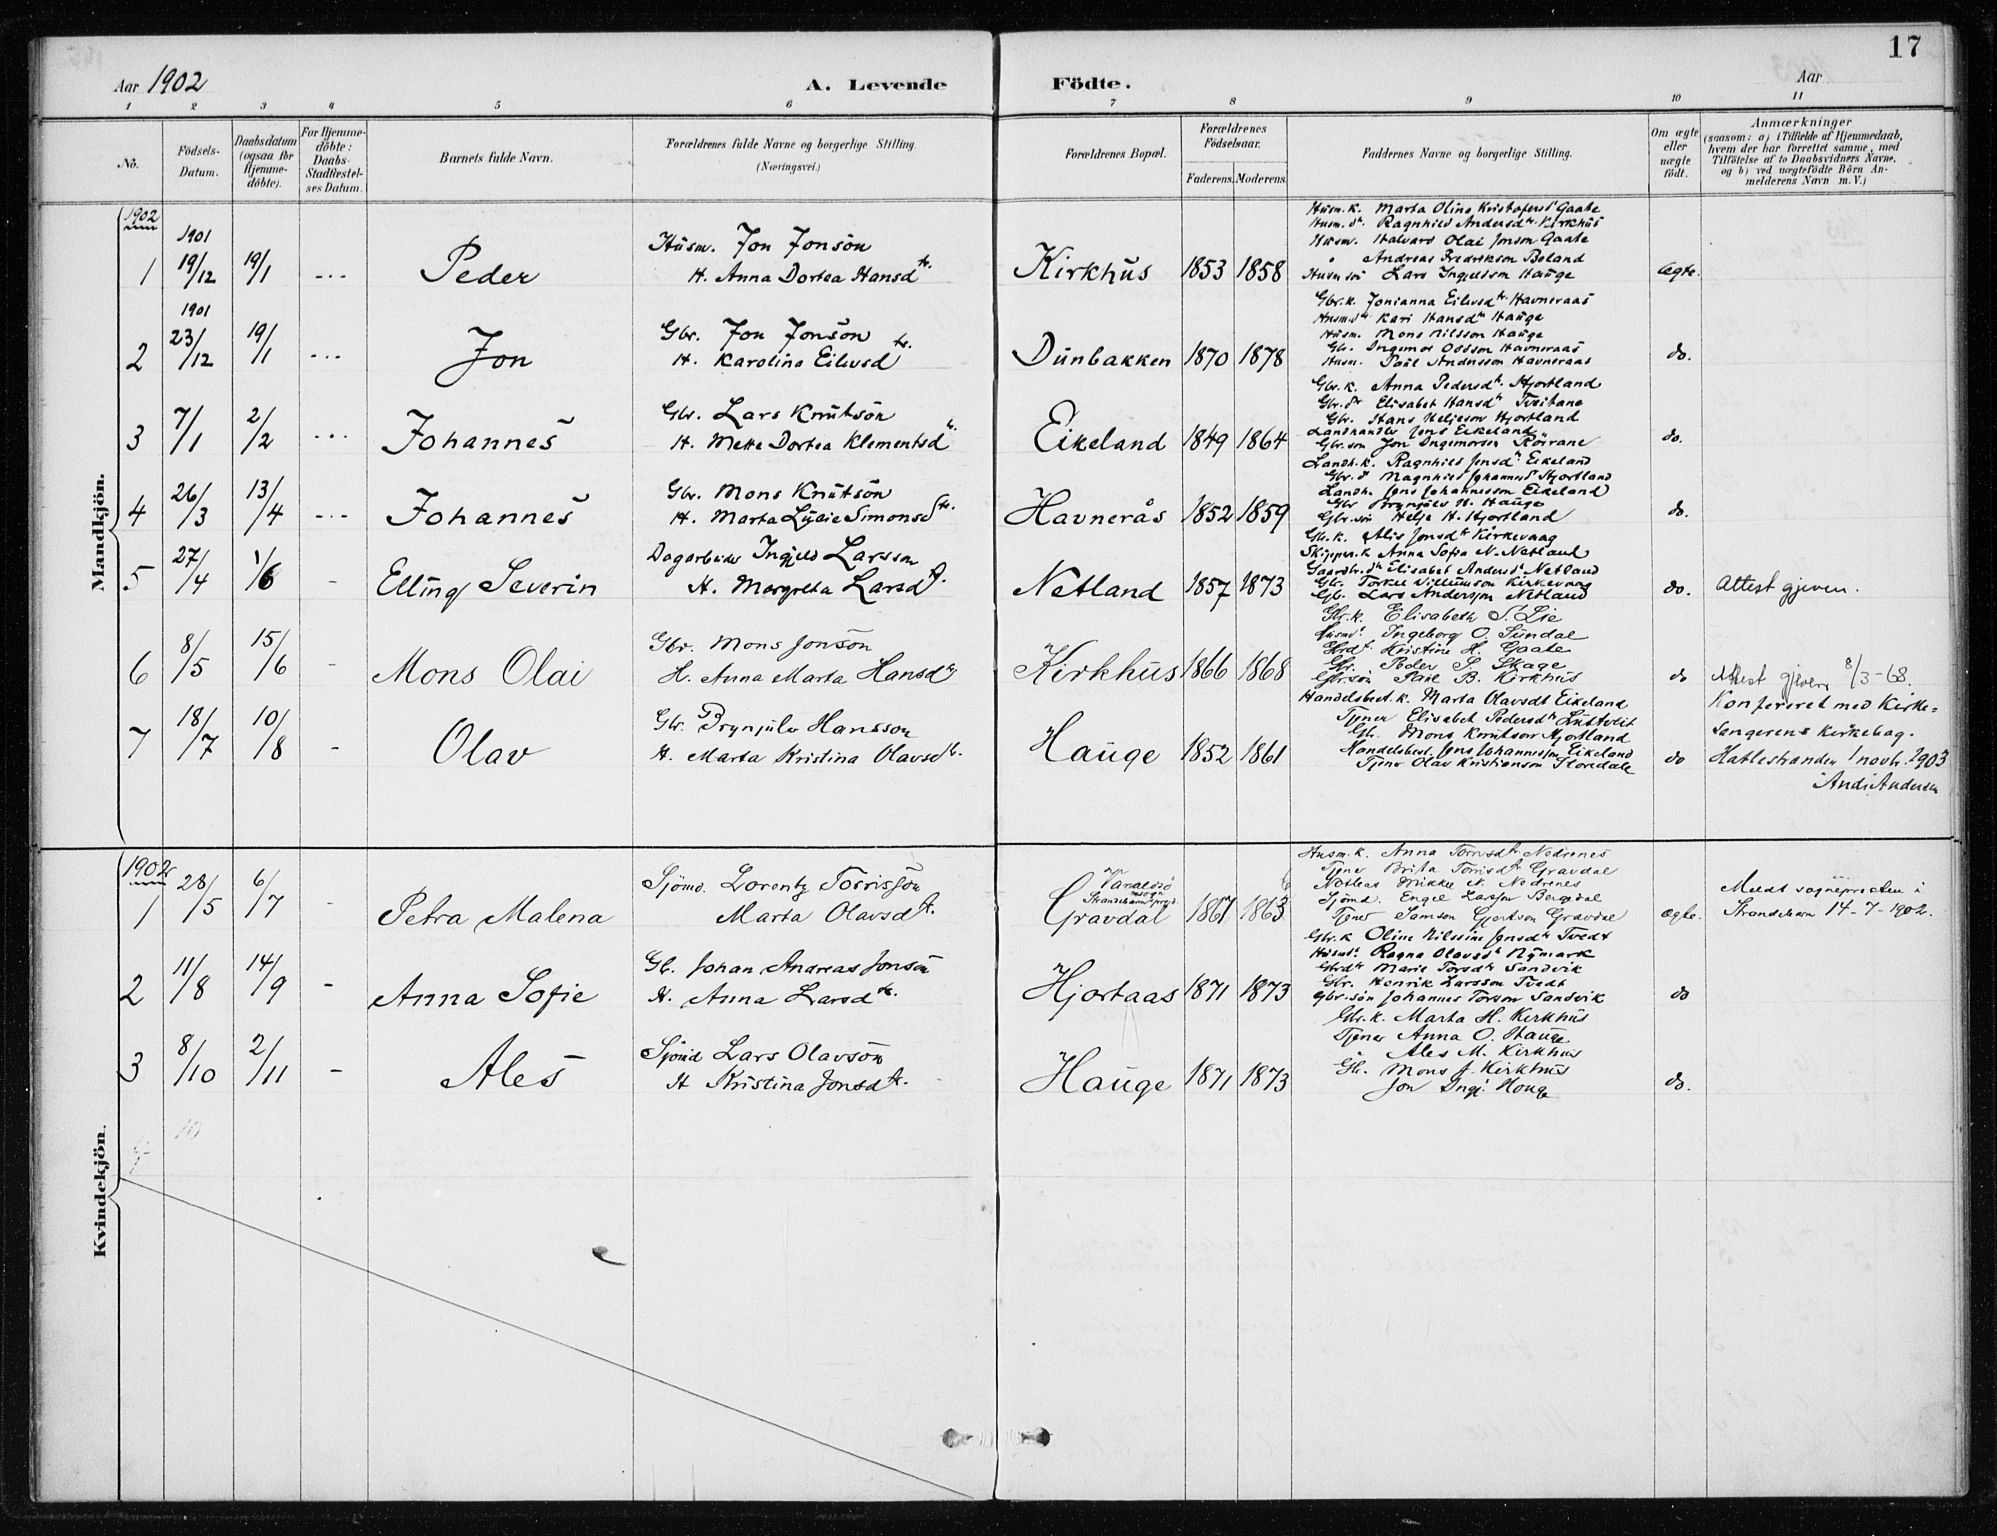 17
Aar 1902 A. Levende Födte. Aar
1 2 3 4 5 6 7 8 9 10 11
Nô. Födsels-Datum. Daabsdatum (ogsaa for Hjemmedöbte). For Hjemmedöbte: Daabs-Stadfæstelses Datum. Barnets fulde Navn. Forældrenes fulde Navne og borgerlige Stilling. (Næringsvei.) Forældrenes Bopæl. Forældrenes Födselsaar. Faderens. Moderens. Faddernes Navne og borgerlige Stilling. Om ægte eller uægte födt. Anmærkninger (saasom: a) i Tilfælde af Hjemmedaab, hvem der har forrettet samme, med Tilföielse af to Daabsvidners Navne, og b) ved uægtefödte Börn Anmelderens Navn m. V.)
Mandkjön.
1902
1 1901 19/12 19/1 --- Peder
Husm. Jon Jonsön
H. Anna Dortea Hansdtr.
Kirkhus 1853 1858
Husm. k. Marta Olina Kristofersdr Gaate
Husm. dr. Ragnhild Andersdtr. Kirkhus
Husm. Halvard Olai Jonson Gaate
" Andreas Fredrikson Boland
Husm. sön Lars Ingjeldson Hauge
ægte.
2 1901 23/12 19/1 --- Jon
Gbr. Jon Jonsön
H. Karolina Eilevsdtr.
Dunbakken 1870 1878
Gbr. k. Jonianna Eilevsdtr. Havneraas
Husmdr. Kari Hansdtr Hauge
Husm. Mons Nilsson Hauge
Gbr. Ingemor Oddson Havneraas
Husm. Paul Andersson Havneraas
do.
3 7/1 2/2 --- Johannes
Gbr. Lars Knutsön
H. Mette Dortea Klementsdtr.
Eikeland 1849 1864
Gbr. k. Anna Pedersdtr. Hjortland
Gbr. dtr Elisabet Hansdtr Tveitane
Gbr. Hans Heljeson Hjortland
Landhandler Jens Eikeland
Gbr. son Jon Ingemorsen Rörrane
do.
4 26/3 13/4 --- Johannes
Gbr. Mons Knutsön
H. Marta Lucie Simonsdtr.
Havnerås 1852 1859
Landh. k. Ragnhild Jensdtr Eikeland
Gbr. d Magnhild Johannesd Hjortland
Landh. Jens Johannesson Eikeland
Gbr Brynjulv H. Hauge
Gbr. sön Helje H. Hjortland
do.
5 27/4 1/6 - Elling Severin
Dagarbeider Ingjeld Larsson
H. Margreta Larsdtr.
Netland 1857 1873
Gbr. k. Alis Jonsdtr Kirkevaag
Skipper. k Anna Sofia N. Netland
Gaardbr. dtr Elisabet Andersdr Netland
Gbr. Torkel Villumson Kirkevaag
Gbr. Lars Andersson Netland
do. Attest gjeven.
6 8/5 15/6 - Mons Olai
Gbr. Mons Jonsön
H. Anna Marta Hansdtr
Kirkhus 1866 1868
Gbr. k. Elisabeth S. Lie
Husmdr Ingeborg O. Sundal
Gbrdtr Kristine H. Gaate
Gbr. Peder S. Skage
Gbr. sön Paul B. Kirkhus
do Attest gjeven 8/3-68.
7 18/7 10/8 - Olav
Gbr. Brynjulv Hansson
H. Marta Kristina Olavsdtr.
Hauge 1852 1861
Handelsbest. k. Marta Olavsdt Eikeland
Tjener Elisabet Pedersdtr
Gb. Mons Knutson Hjortland
Handelsbest. Jens Johannesson Eikeland
Tjener Olav Kristianson
do Konfereret med Kirke=
sangerens kirkebog.
Hatlestranden 1 novb. 1903
Andr. Andersen
Kvindekjön.
1902
1 28/5 6/7 - Petra Malena
Sjömd. Lorentz Torrisson
Marta Olavsdtr.
Varaldsö sogn Strandebarm prgd. Gravdal 1867 1863
Husm. k. Anna Torrisdtr Nedrenes
Tjener Brita Torrisdtr Gravdal
Mikkel N. Nedrenes
Sjömd. Engel Larsson Bergdal
Tjener Samson Gjertson Gravdal
ægte. Meldt sognepresten i
Strandebarm 14-7-1902.
2 11/8 14/9 - Anna Sofie
Gb. Johan Andreas Jonsön
H. Anna Larsdtr.
Hjortaas 1871 1873
Gbr. k Oline Nilssine Jensdtr Tvedt
Husmdr Ragna Olavsdr Nymark
Gbrdtr Marie Torsdtr Sandvik
Gbr. Henrik Larsson Tvedt
Gbr. sön Johannes Torson Sandvik
do
3 8/10 2/11 - Ales
Sjömd Lars Olavsön
H Kristina Jonsdtr.
Hauge 1871 1873
Gbr. k. Marta H. Kirkhus
Tjener Anna O. Hauge
" Ales M. Kirkhus
Gb. Mons J. Kirkhus
Jon Ingj. Hauge
do.